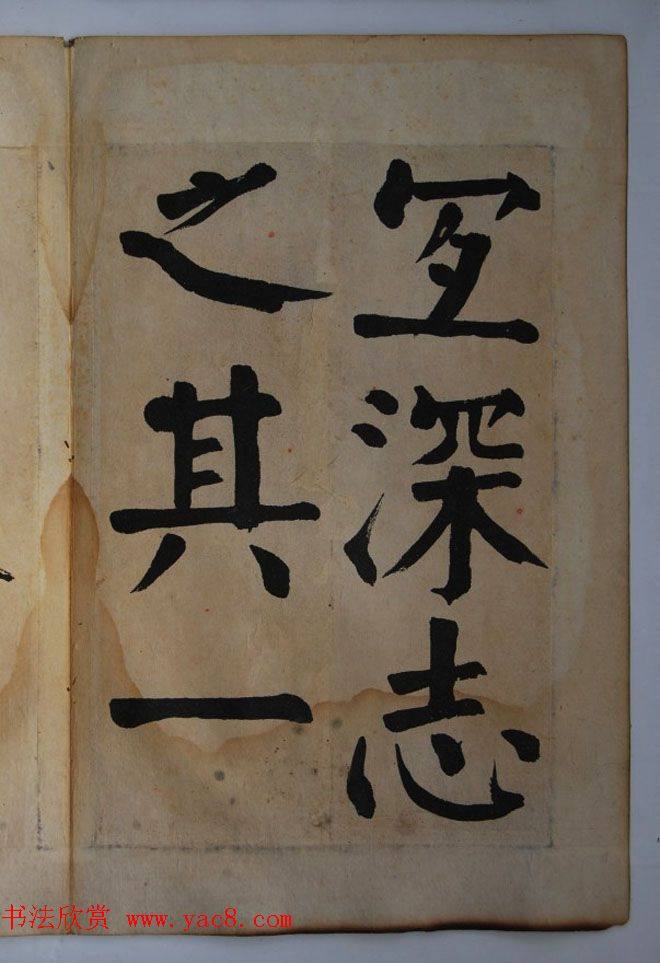 宜深志
之其一
书法欣赏 www.yac8.com